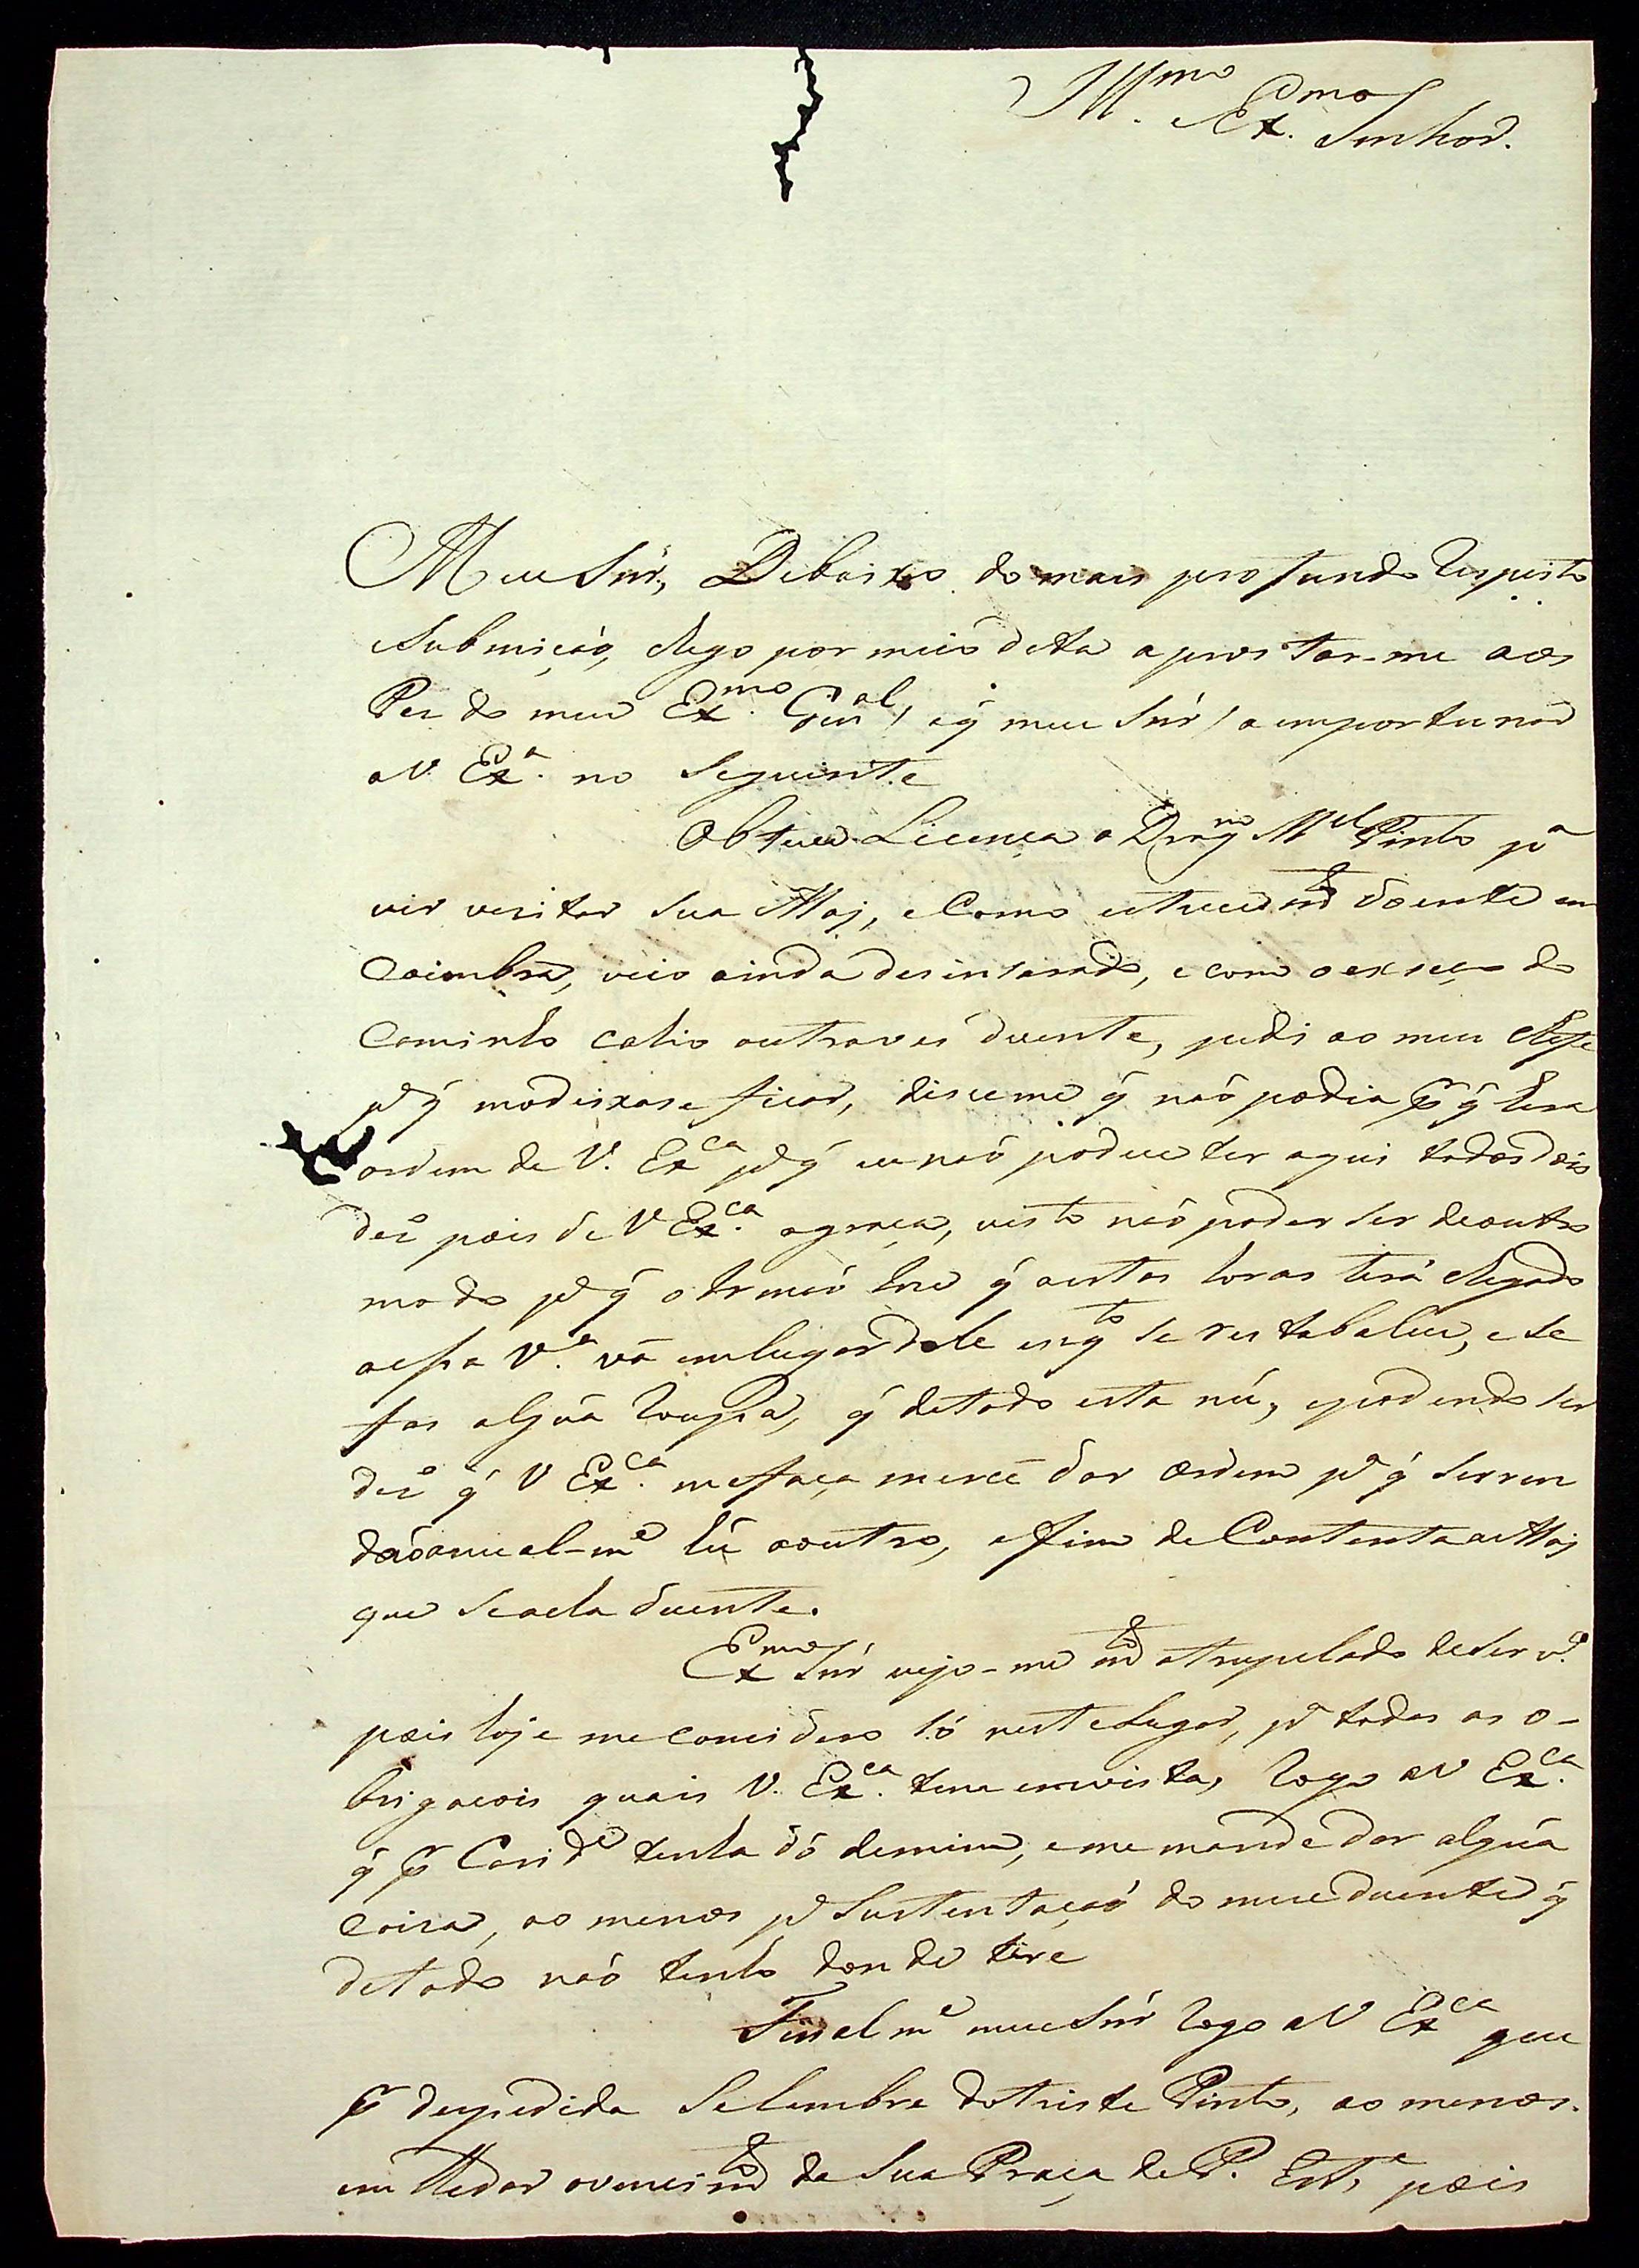 Ill.mo e Ex.mo Senhor.
Meu Snr., Debaixo do mais profundo Respeito
e Submição, chego por meio desta a prostar-me aos
Pes do meu Ex.mo Gen.al, e q̃ meu Snr / a emportunar
a V. Ex.a no Seguinte
Obteve Licença o Drag.m M.el Pinto p.a
vir vezitar sua Maj, e Como esteve m.to doente em
Coimbra, veio ainda desintarado, e com o exseço do
Caminho cahio outraves duente, pedi ao meu Chefe
p.a q̃ modeixase ficar, disceme q̃ naó podia p.r q̃ tera
ordem de V. Ex.ca p.a q̃ eu naó podece ter aqui todos dois
dez.o pois de V Ex.ca agraça, visto naó poder ser deoutro
modo p.a q̃ o Irmaó hre q̃ aestas horas terá chegado
aessa V.a vá emlugar dele enq.to se restabalece, e se
fas algúa roupa, q̃ detodo esta nú, epodendo ser
dez.o q̃ V Ex.ca mefaça mercê dar ordem p.a q̃ serren
daó anual-m.e hú aoutro, afim de Contentar a Maj
que seacha duente.
Ex.mo Snr vejo-me m.to atrupelado deser v.o
pois hoje me considero só neste Lugar, p.a todas as o-
brigacois quais V. Ex.ca tem emvista, rogo aV Ex.ca
q̃ p.r Carid.e tenha dó demim, eme mande dar algúa
coiza, ao menos p.a Sustentaçaó do meu duente q̃
detodo naó tenho donde tire
Final m.e meu Snr rogo aV Ex.ca que
p.r despedida Selembre dotriste Pinto, ao menos
em lhedar ovencim.to da sua Praça de P. Est.e pois